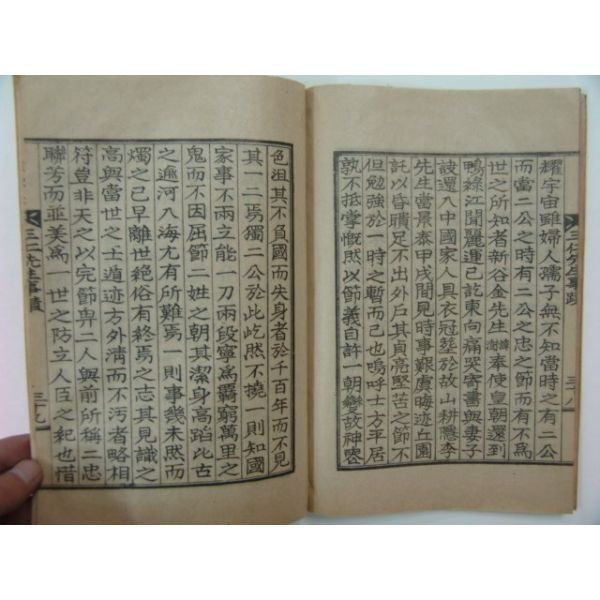 耀宇宙雖婦人孺子無不知當時之有二公
而當二公之時有二公之忠之節而有不爲
世之所知者新谷金先生諱澍奉使皇朝還到
鴨綠江聞麗運已訖東向痛哭寄書與妻子
誜還入中國家人具衣冠塟於故山耕隱李
先生當景泰甲戌間見時事艱虞晦迹丘園
託以昏聵足不出外戶其貞亮堅苦之節不
但勉強於一時之暫而已也嗚呼士方平居
孰不抵掌慨然以節義自許一朝變故神
三仁先生事蹟
三八
色沮其不負國而失身者於千百年而不見
其一二焉獨二公於此屹然不撓一則知國
家事不兩立能一刀兩段寧爲羈窮萬里之
鬼而不因屈節二姓之朝其潔身高蹈比古
之適河入海尤有所難焉一則事幾未然而
燭之已早離世絶俗有終焉之志其見識之
高與當世之士遁迹方外淸而不污者略相
符豈非天之以完節畀二人與前所稱二忠
聯芳而並美爲一世之防立人臣之紀也惜
三仁先生事蹟
三十九